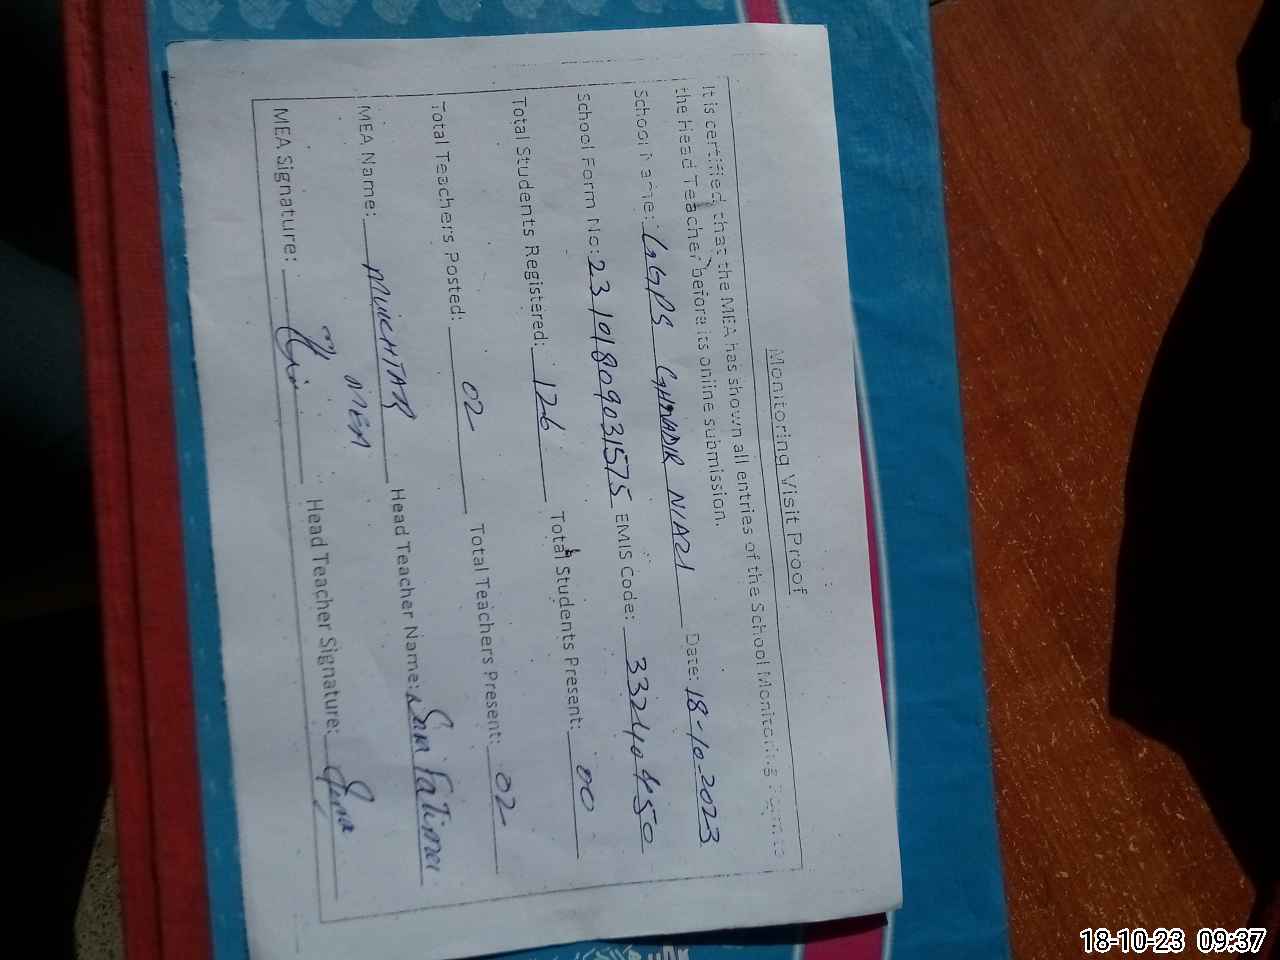 Monitoring Visit Proof
It is certified that the MEA has shown all entries of the School Monitoring Form to
the Head Teacher before its online submission.
School Name: GGPS Date: 18-10-2023
School Form No: 23191809031575 EMIS Code: 33240450
Total Students Registered: 126 Total Students Present: 00
Total Teachers Posted: 02 Total Teachers Present: 02
MEA Name: MUKHTAR Head Teacher Name: Fatima
MEA
MEA Signature: Head Teacher Signature:
18-10-23 09:37